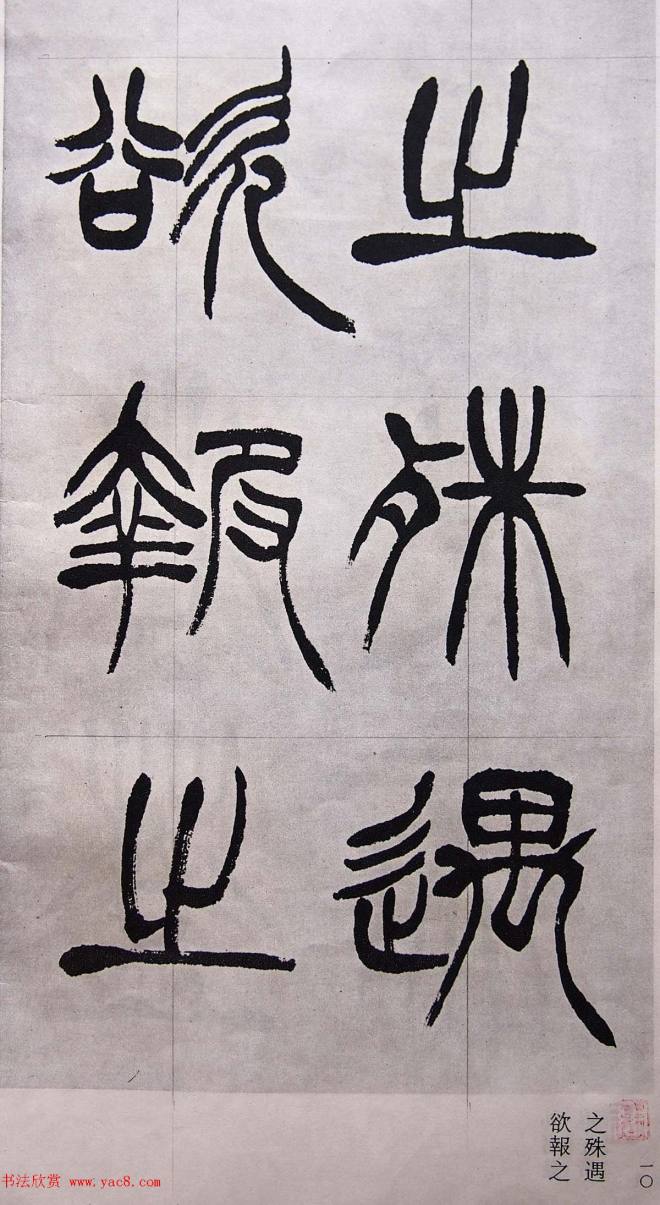 之殊遇
欲報之
之殊遇
欲報之
一〇
书法欣赏 www.yac8.com